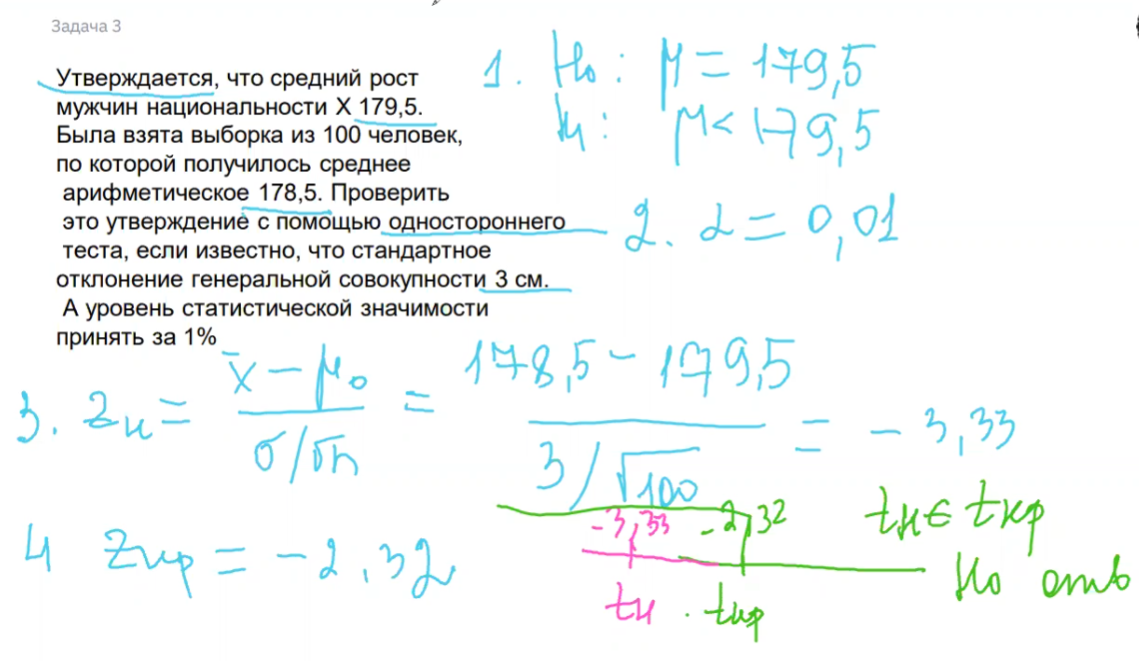 Задача 3
Утверждается, что средний рост
мужчин национальности X 179,5.
Была взята выборка из 100 человек,
по которой получилось среднее
арифметическое 178,5. Проверить
это утверждение с помощью одностороннего
теста, если известно, что стандартное
отклонение генеральной совокупности 3 см.
А уровень статистической значимости
принять за 1%
1. H₀: μ = 179,5
H₁: μ < 179,5
2. α = 0,01
3. Zн = (x̄ − μ₀) / (σ/√n) = (178,5 − 179,5) / (3/√100) = −3,33
4 Zкр = −2,32
−3,33 −2,32
tн . tкр
tн ∈ tкр
H₀ отв